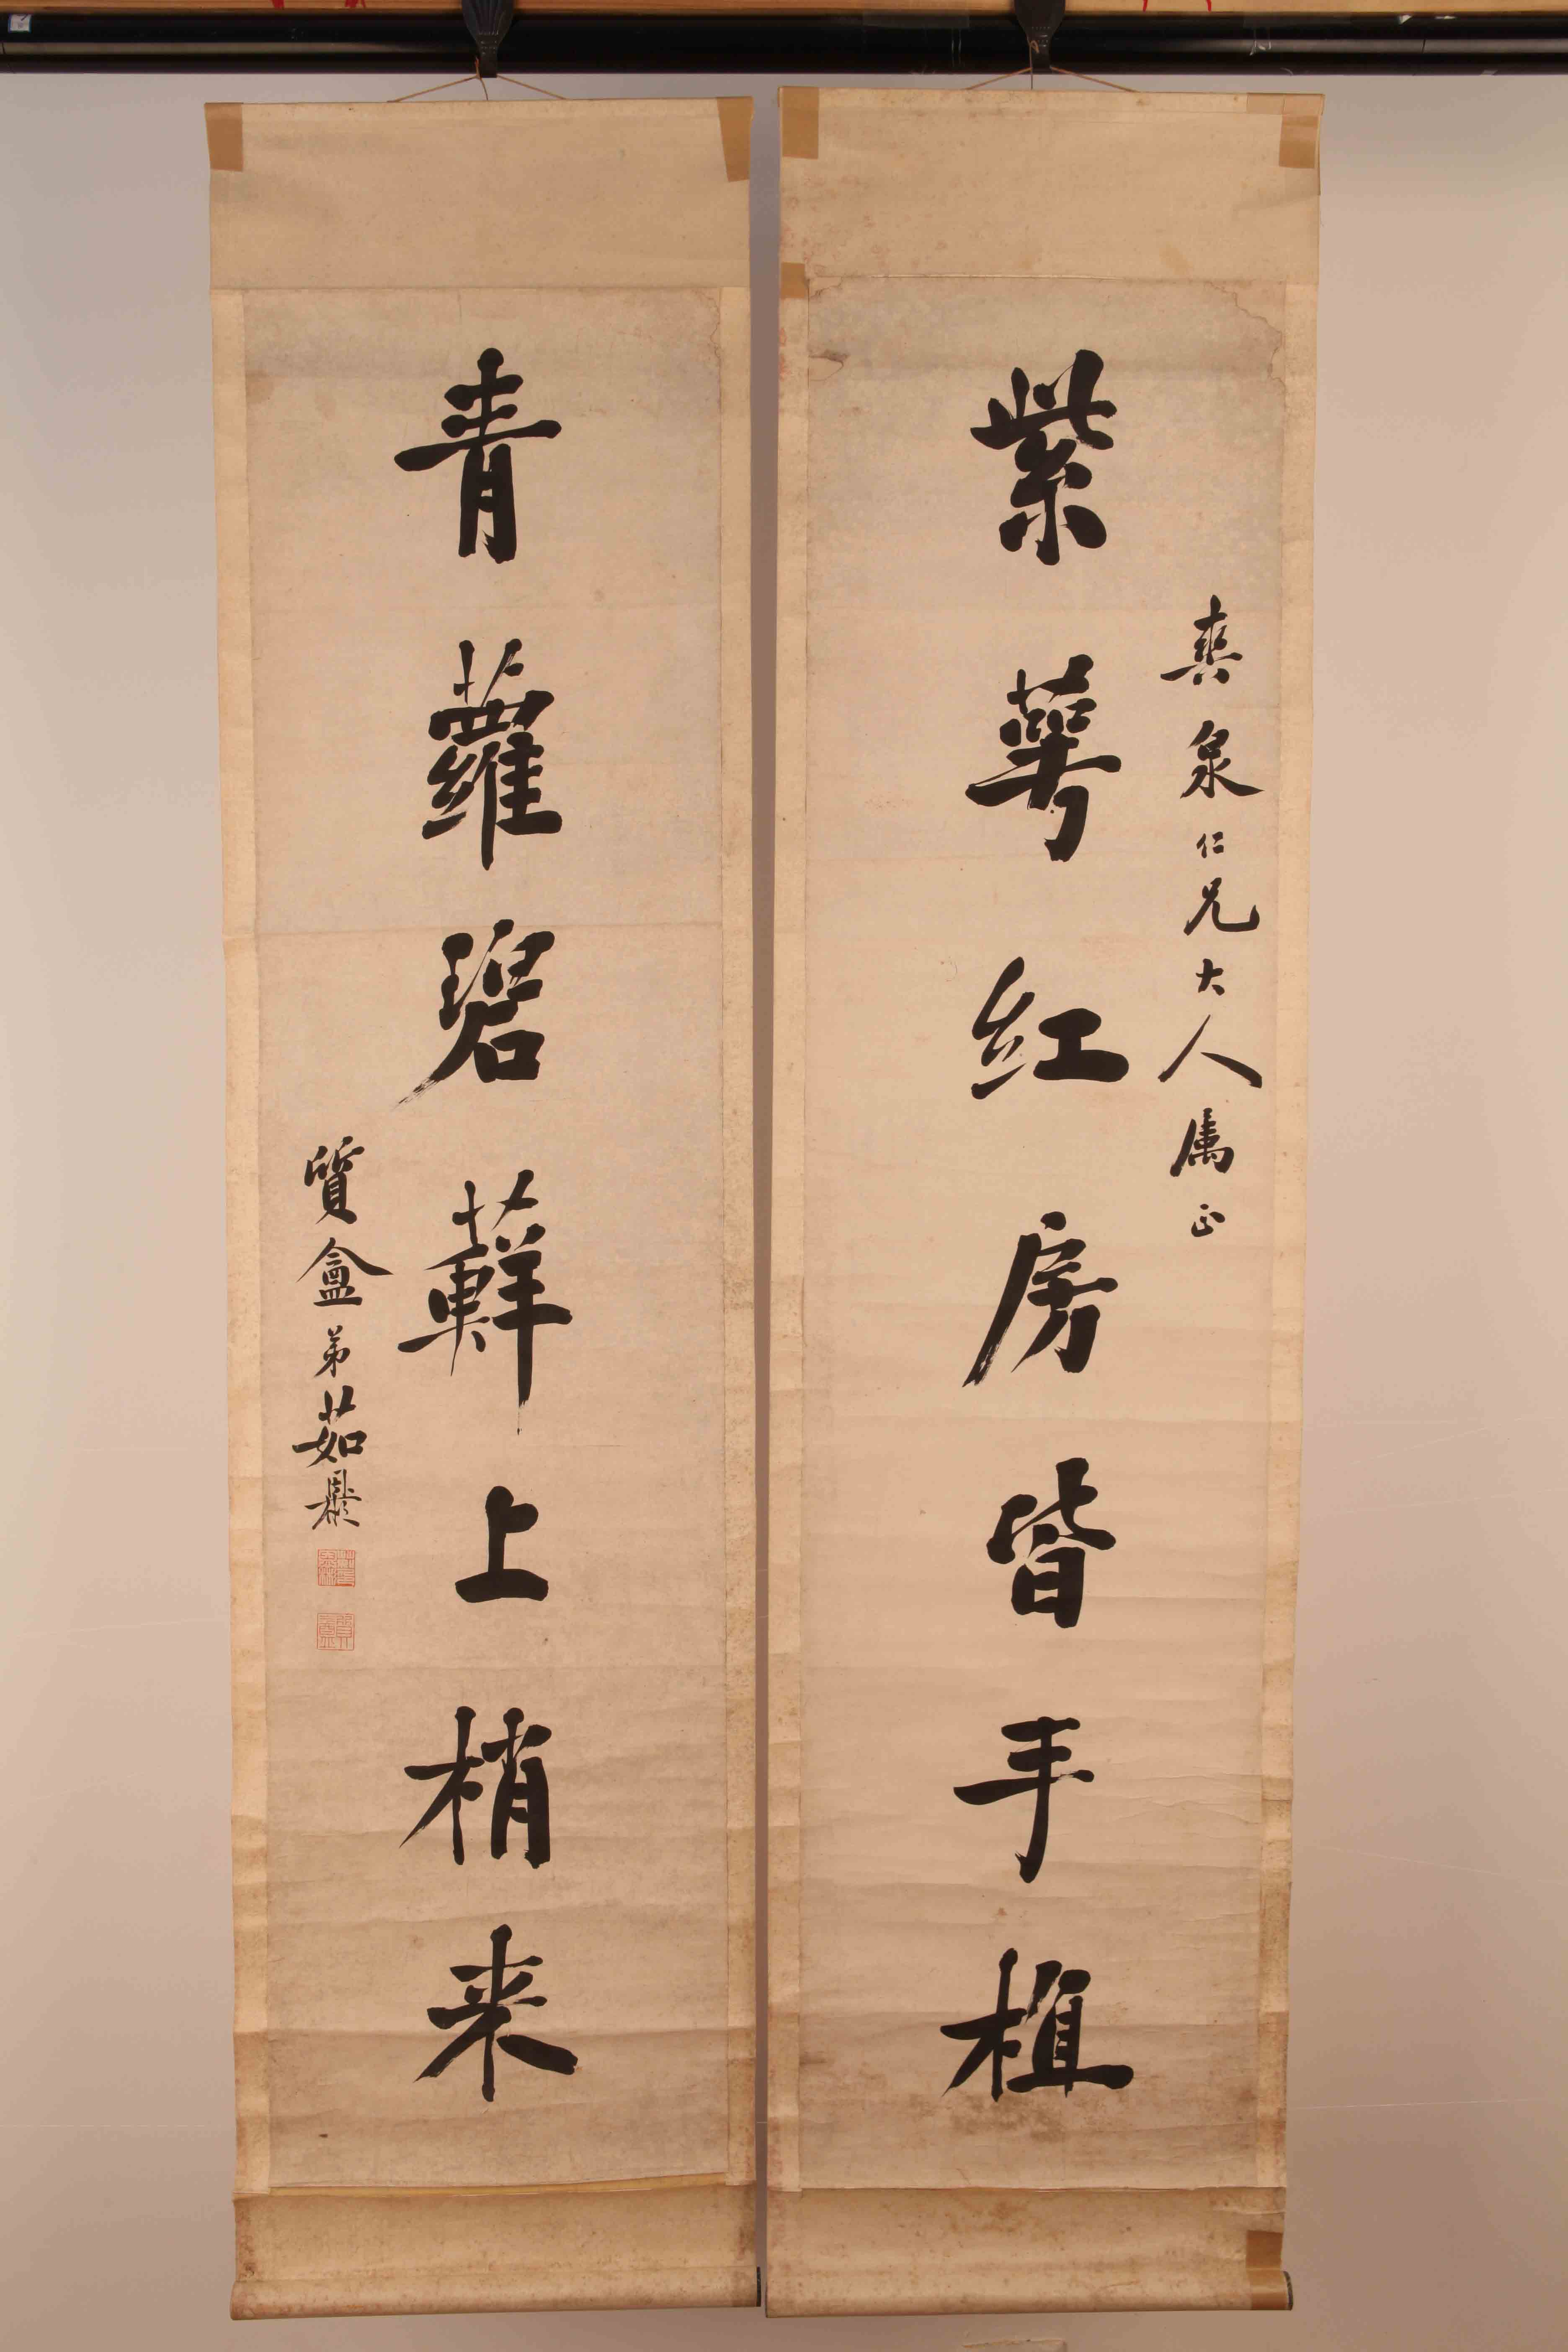 爽泉仁兄大人属正
紫萼紅房皆手植
青蘿碧蘚上梢来
質盦弟茹